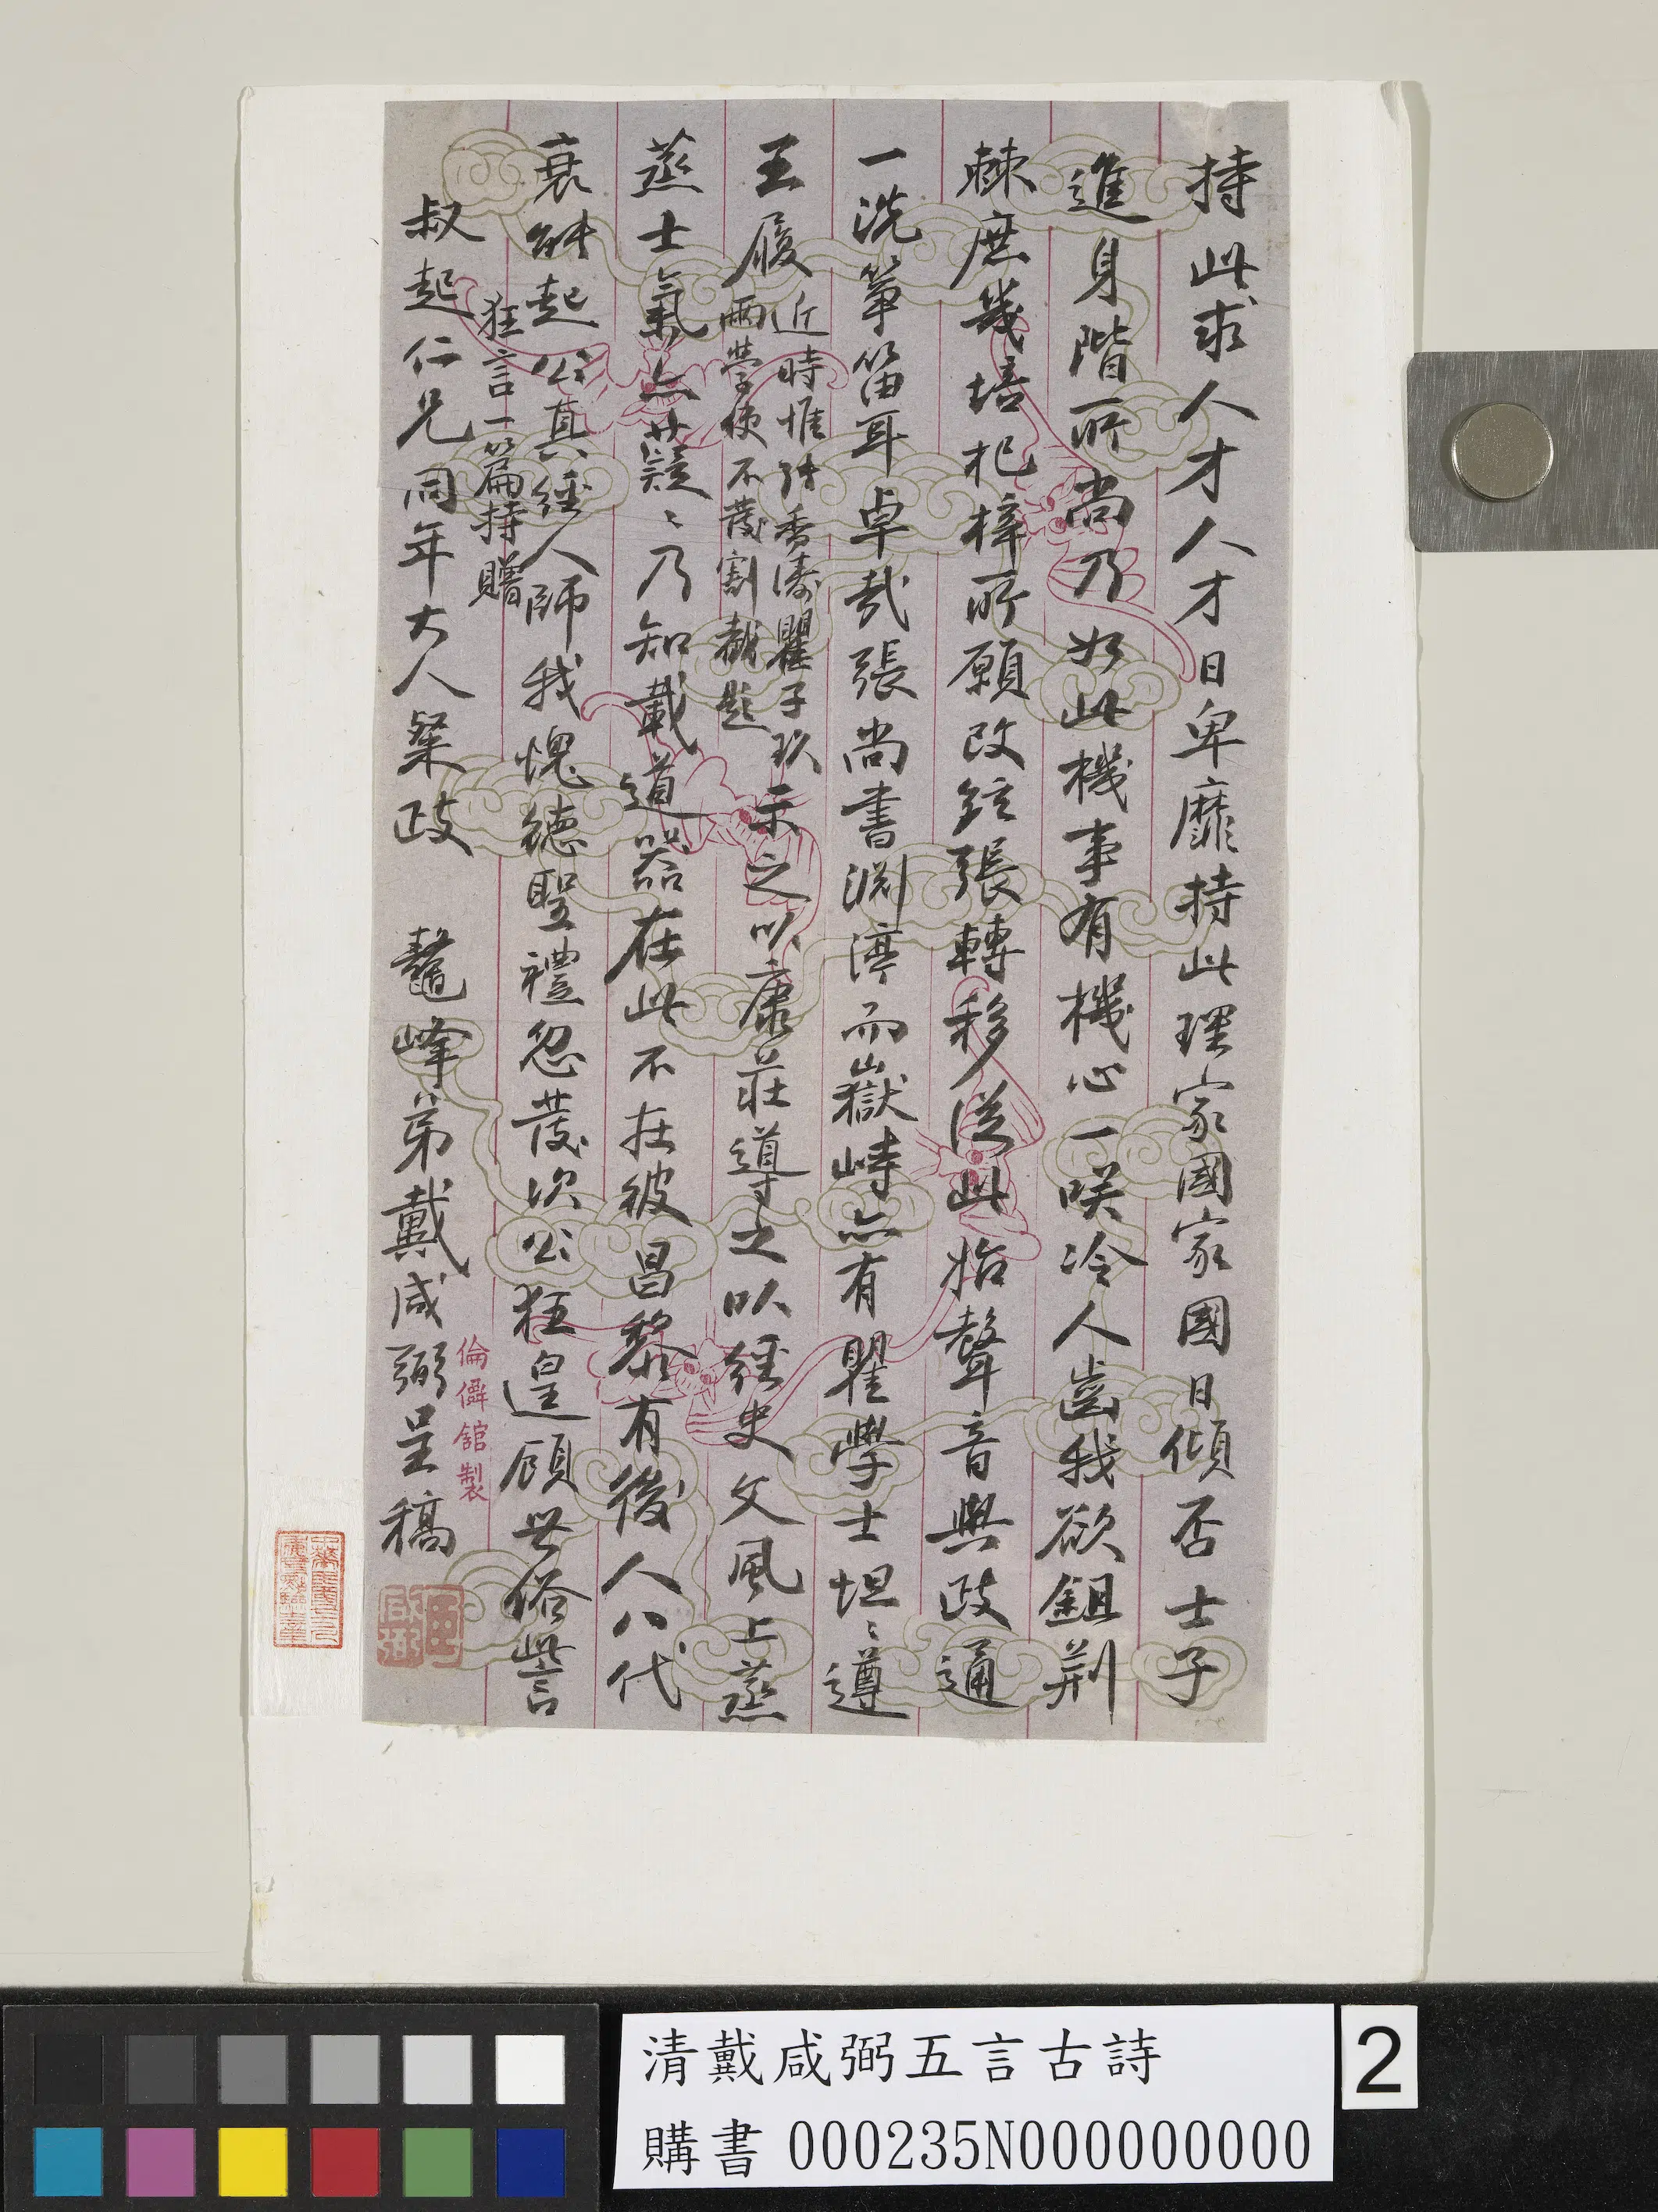 持此求人才人才日卑靡持此理家國家國日傾否士子
進身階所尚乃如此機事有機心一咲冷人齒我欲鉏荊
棘庶幾培杞梓所願改絃張轉移從此始聲音與政通
一洗箏笛耳卓哉張尚書淵渟而嶽峙亦有瞿學士坦〻遵
王履近時惟張香濤瞿子玖
兩學使不發割截題示之以康莊導之以經史文風上蒸
蒸士氣亦薿〻乃知載道器在此不在彼昌黎有後人八代
衰能起公真經人師我愧德聖禮忽發次公狂遑顧世俗訾
狂言一篇持贈
叔起仁兄同年大人粲政 鼇峰弟戴咸弼呈稿
倫儷館製
咸弼
清戴咸弼五言古詩
購書 000235N000000000
2